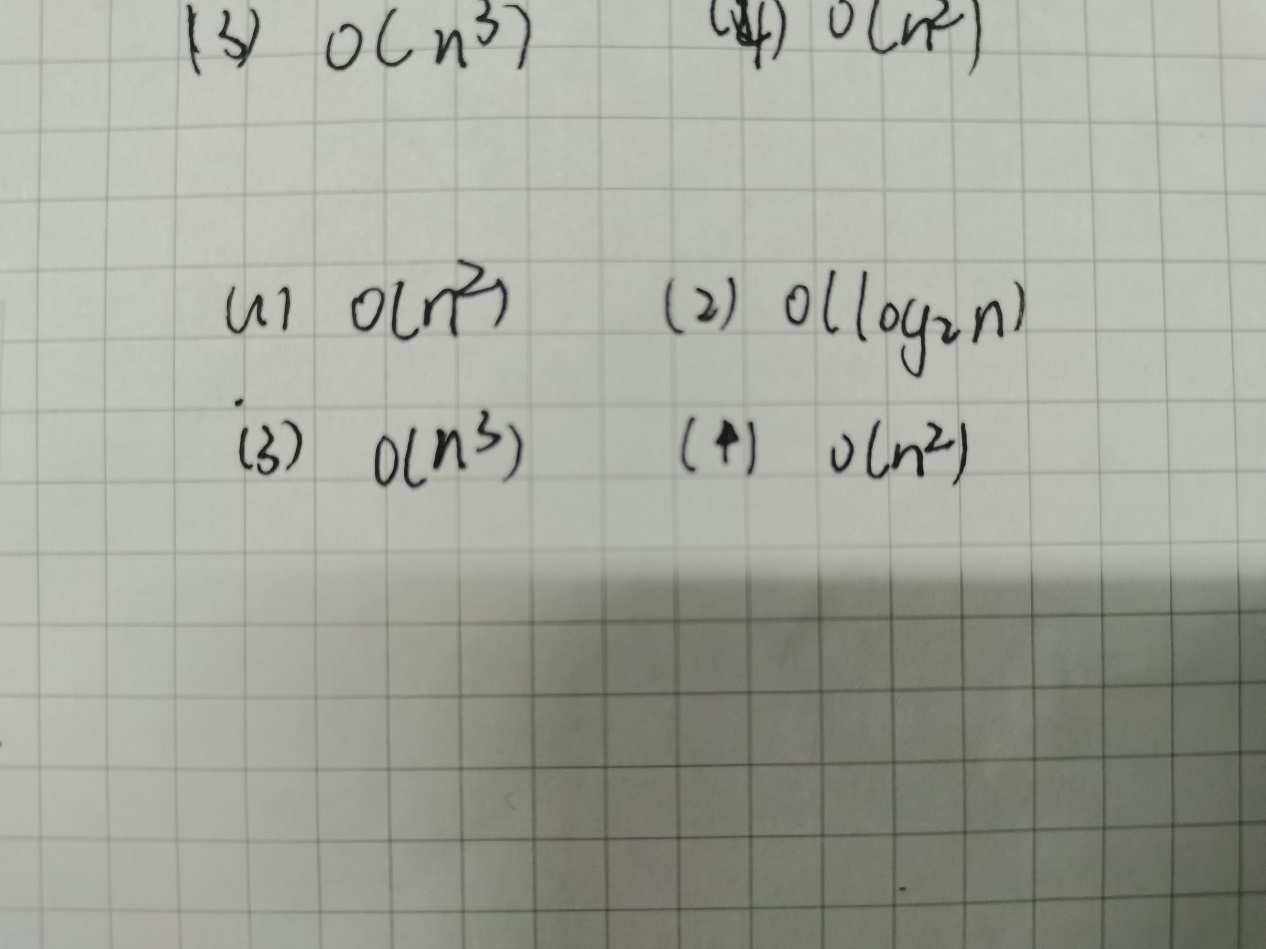 (3) O(n³) (4) O(n²)
(1) O(n²) (2) O(log₂n)
(3) O(n³) (4) O(n²)